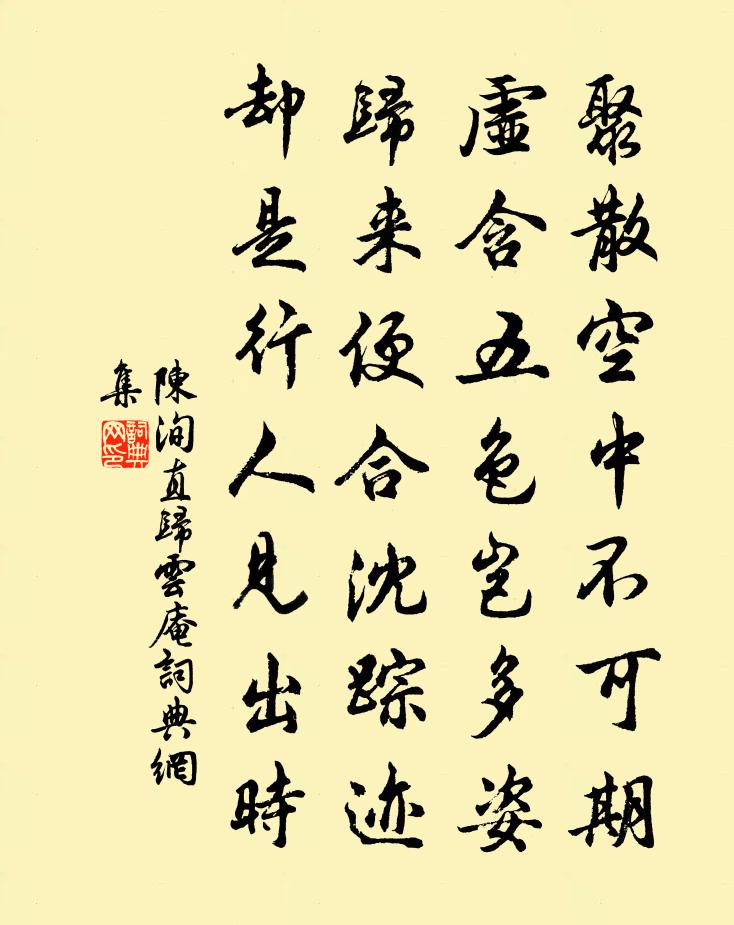 聚散空中不可期
虛含五色豈多姿
歸来便合沈踪迹
却是行人見出時
陳洵直歸雲庵詞典網
集
詞典
网印